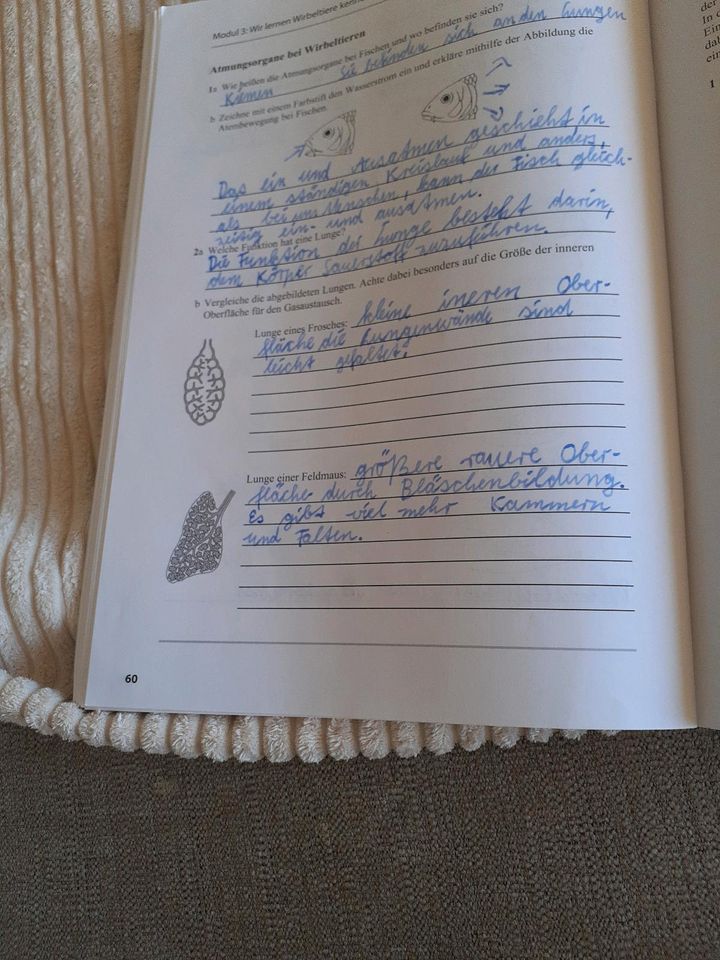 Modul 3: Wir lernen Wirbeltiere kenne
Atmungsorgane bei Wirbeltieren
1a Wie heißen die Atmungsorgane bei Fischen und wo befinden sie sich?
Kiemen Sie befinden sich an den Lungen
b Zeichne mit einem Farbstift den Wasserstrom ein und erkläre mithilfe der Abbildung die
Atembewegung bei Fischen.
Das ein und Ausatmen geschieht in
einem ständigen Kreislauf und anders,
als bei uns Menschen, kann der Fisch gleich-
zeitig ein- und ausatmen.
2a Welche Funktion hat eine Lunge?
Die Funktion der Lunge besteht darin,
dem Körper Sauerstoff zuzuführen.
b Vergleiche die abgebildeten Lungen. Achte dabei besonders auf die Größe der inneren
Oberfläche für den Gasaustausch.
Lunge eines Frosches: kleine ineren Ober-
fläche die Lungenwände sind
leicht gefaltet.
Lunge einer Feldmaus: größere rauere Ober-
fläche durch Bläschenbildung.
Es gibt viel mehr Kammern
und Falten.
60
der
In
Ein
dab
ein
1